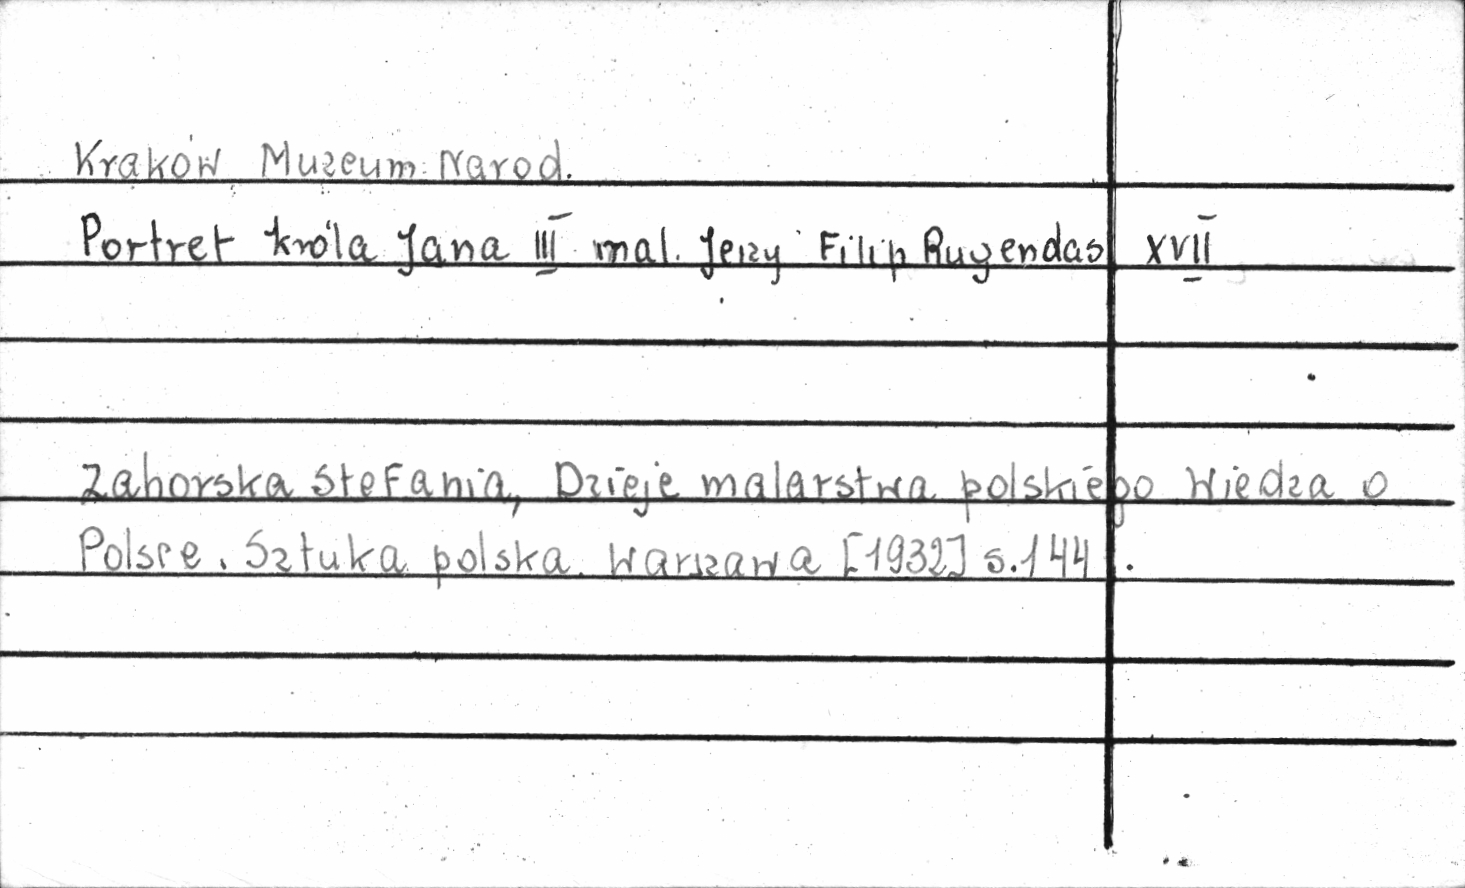 Kraków Muzeum Narod.
Portret króla Jana III mal. Jerzy Filip Rugendas XVII
Zahorska Stefania, Dzieje malarstwa polskiego Wiedza o
Polsce. Sztuka polska. Warszawa [1932] s. 144.